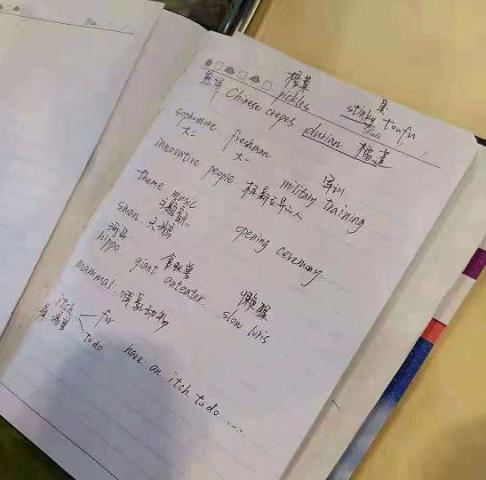 榨菜 臭
煎饼 Chinese crepes pickles stinky toufu
plurian 榴莲
sophomore freshman
大二 大一
innovative people 创新型人 军训
military training
theme music
主题歌
swan 天鹅 opening ceremony
河马 食蚁兽 懒猴
hippo giant anteater. slow loris
mammal. 哺乳动物
itch for
to do
have an itch to do ....